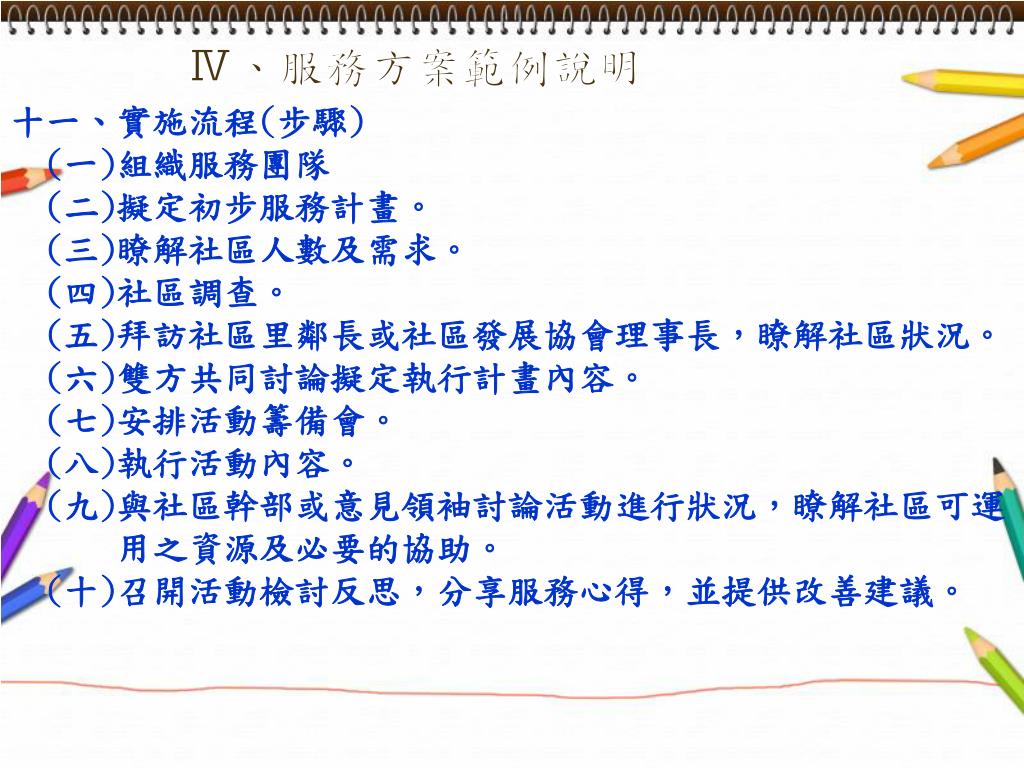 Ⅳ、服務方案範例說明
十一、實施流程(步驟)
(一)組織服務團隊
(二)擬定初步服務計畫。
(三)瞭解社區人數及需求。
(四)社區調查。
(五)拜訪社區里鄰長或社區發展協會理事長，瞭解社區狀況。
(六)雙方共同討論擬定執行計畫內容。
(七)安排活動籌備會。
(八)執行活動內容。
(九)與社區幹部或意見領袖討論活動進行狀況，瞭解社區可運
用之資源及必要的協助。
(十)召開活動檢討反思，分享服務心得，並提供改善建議。